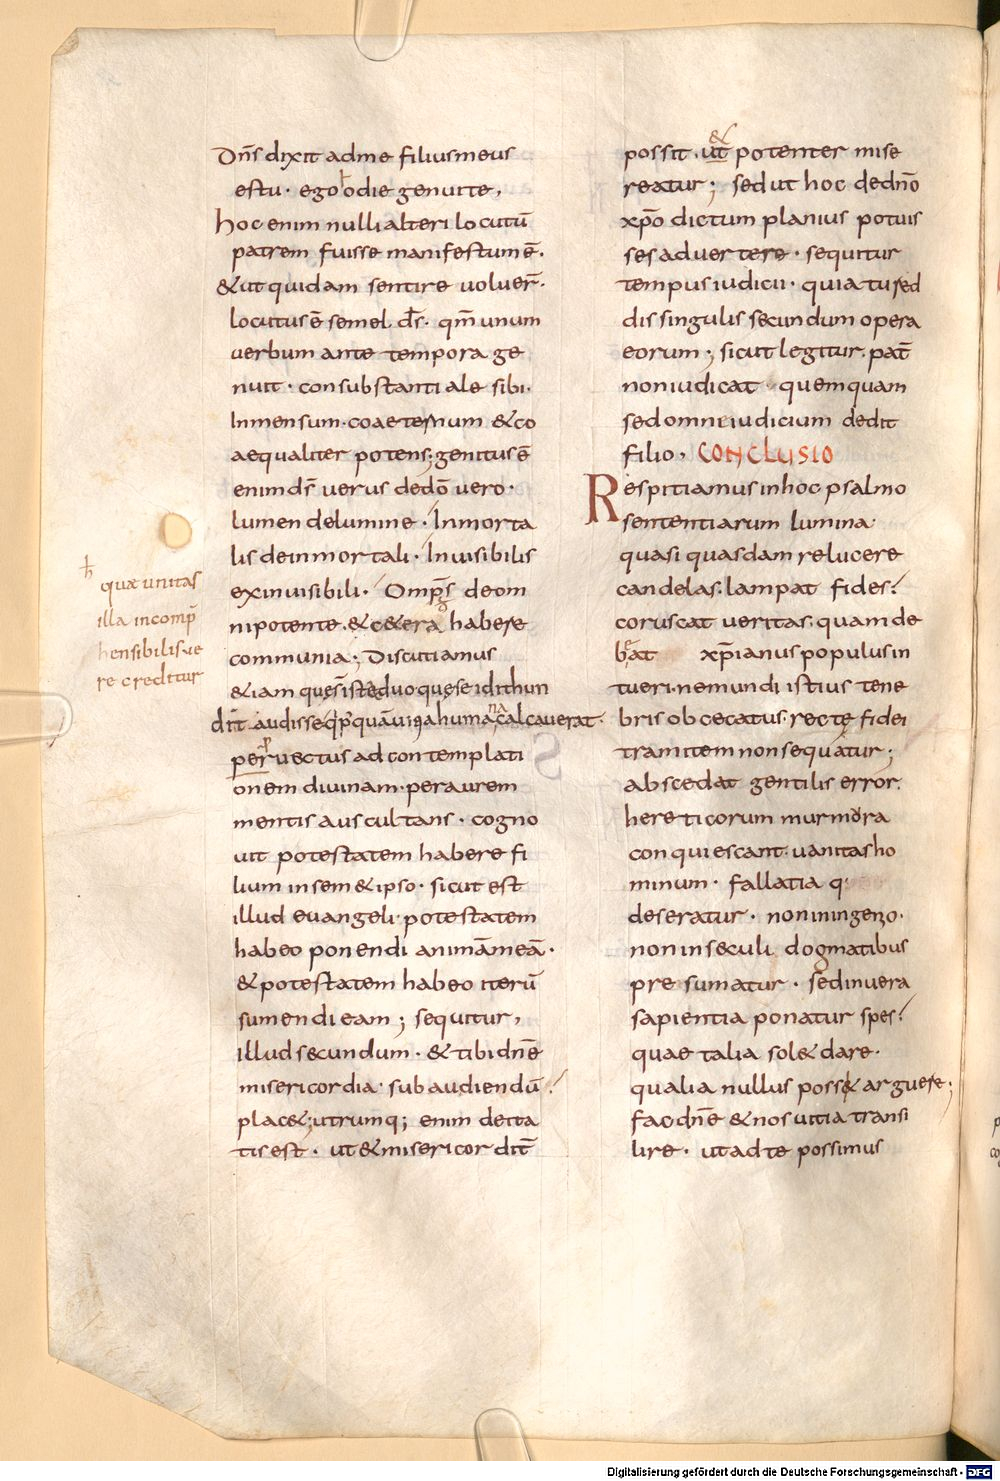 Dn̄s dixit adme filius meus
estu· ego hodie genui te,
hoc enim nulli alteri locutū
patrem fuisse manifestum ē·
& ut quidam sentire uoluer̄·
locutus ē semel d̄s· qm̄ unum
uerbum ante tempora ge
nuit· consubstantiale sibi·
Inmensum· coaeternum & co
aequaliter potens; genitus ē
enim ds̄ uerus dedō uero·
lumen delumine· Inmorta
lis deinmortali· Inuisibilis
exinuisibili· Omps̄ deom
nipotente· & c&era habere
communia; Discutiamus
&iam
dix̄ audisse
peruectus ad contemplati
onem diuinam· per aurem
mentis auscultans· cogno
uit potestatem habere fi
lium insem&ipso· sicut est
illud euangeli· potestatem
habeo ponendi animā meā·
& potestatem habeo iterū
sumendi eam; sequitur,
illud secundum· & tibi dn̄e
misericordia· subaudiendū
plac&; utrumq; enim deita
tis est· ut & misericordit̄
quae unitas
illa incomp̄
hensibilis ue
re creditur
possit· ut & potenter mise
reatur; sed ut hoc dedn̄o
xp̄o dictum planius potuis
ses aduertere· sequitur
tempus iudicii· quia tu red
dis singulis secundum opera
eorum; sicut legitur· pat̄
non iudicat quemquam
sed omne iudicium dedit
filio, CONCLUSIO
Respitiamus in hoc psalmo
sententiarum lumina·
quasi quasdam relucere
candelas· lampat fides
coruscat ueritas· quam de
bat xp̄ianus populus in
tueri· ne mundi istius tene
bris obcecatus· recte fidei
tramitem non sequatur;
abscedat gentilis error·
hereticorum murmora
conquiescant· uanitas ho
minum· fallatia q
deseratur· non in ingenio·
non in seculi dogmatibus
presumatur· sed in uera
sapientia ponatur spes
quae talia sol& dare·
qualia nullus poss& arguere;
fac dn̄e & nos uitia transi
lire· ut ad te possimus
Digitalisierung gefördert durch die Deutsche Forschungsgemeinschaft - DFG